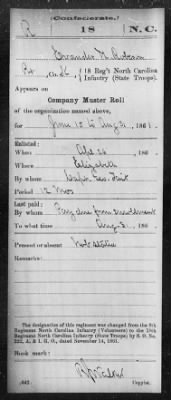 (Confederate.)
R 18 N.C.
Evander N. Robeson
Pvt, Co. K, 18 Reg't North Carolina
Infantry (State Troops).
Appears on
Company Muster Roll
of the organization named above,
for June 15 to Aug 31, 1861.
Enlisted:
When Apl 26, 186
Where Elizabeth
By whom Capt. Geo. Tait
Period 12 Mos
Last paid:
By whom Pay due from enrollment
To what time Aug 31, 186
Present or absent Not stated
Remarks:
The designation of this regiment was changed from the 8th
Regiment North Carolina Infantry (Volunteers) to the 18th
Regiment North Carolina Infantry (State Troops) by S. O. No.
222, A. & I. G. O., dated November 14, 1861.
Book mark:
(642) Copyist.